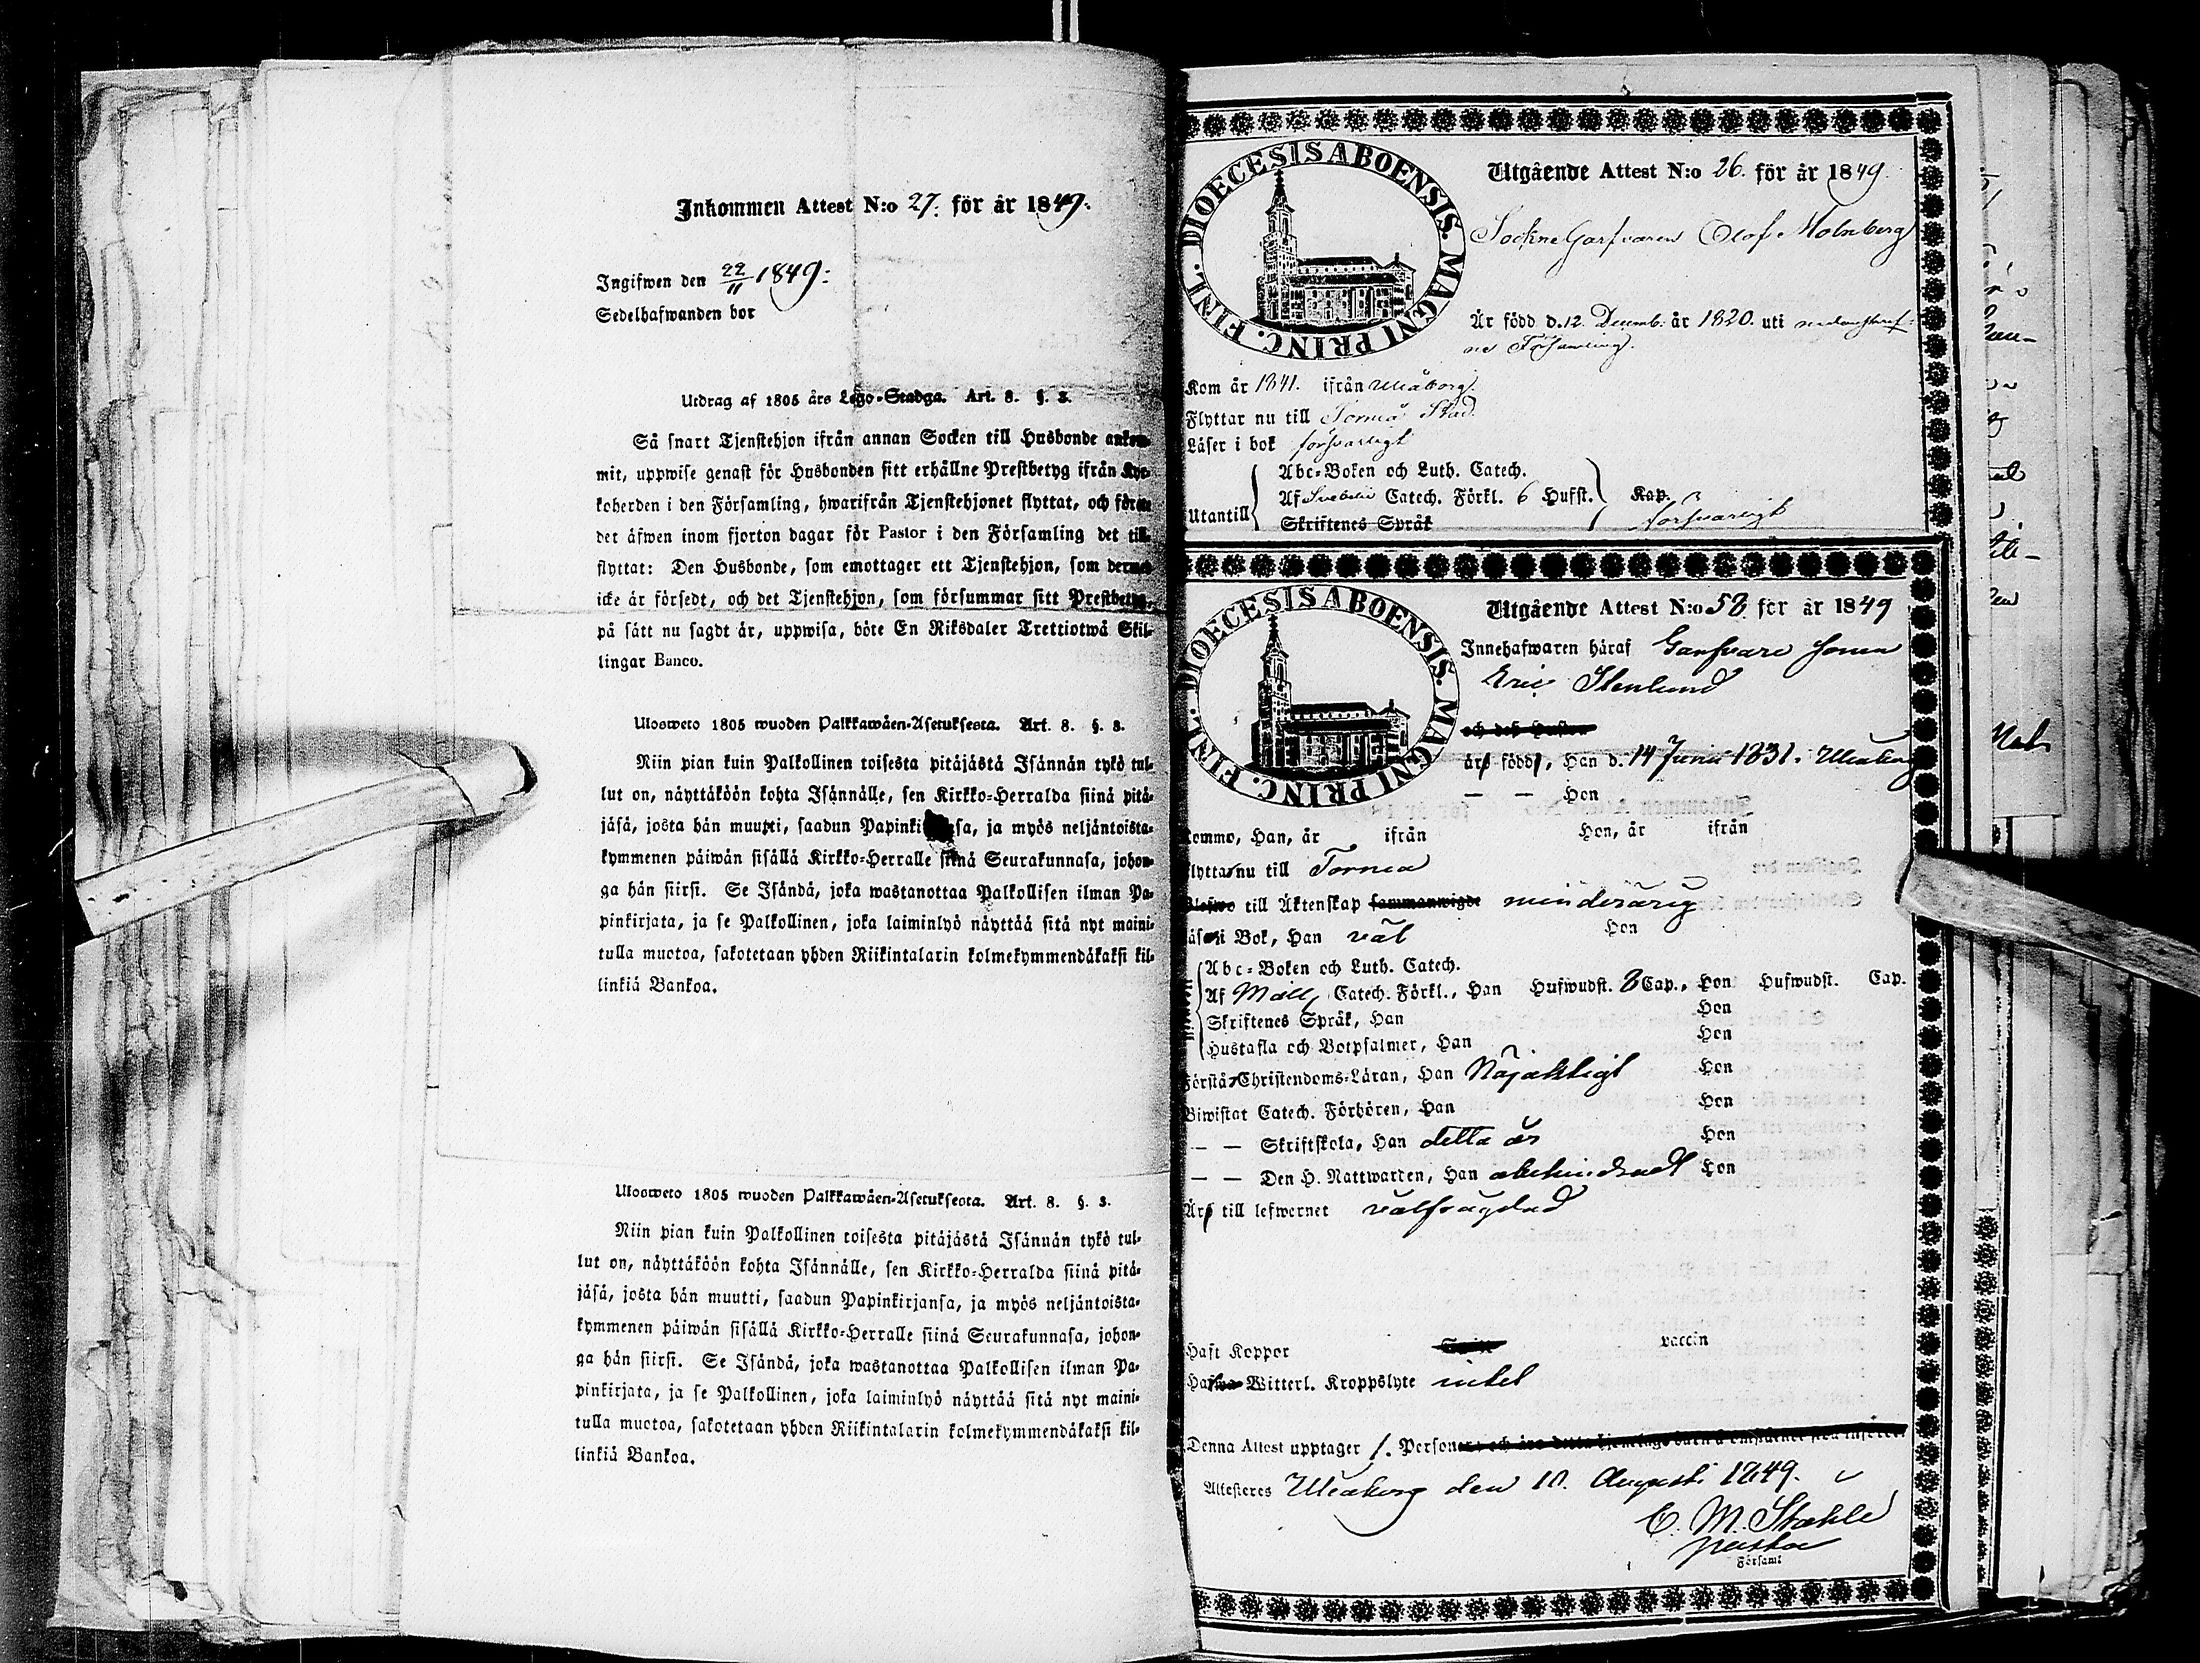 Inkommen Attest N:o 27. för år 1849.
Ingifwen den 22/11 1849.
Sedelhafwanden bor
Utdrag af 1805 års Lego-Stadga. Art. 8. §. 3.
Så snart Tjenstehjon ifrån annan Socken till Husbonde ankom-
mit, uppwise genast för Husbonden sitt erhållne Prestbetyg ifrån Kyr-
koherden i den Församling, hwarifrån Tjenstehjonet flyttat, och förete
det äfwen inom fjorton dagar för Pastor i den Församling det till-
flyttat: Den Husbonde, som emottager ett Tjenstehjon, som dermed
icke är försedt, och det Tjenstehjon, som försummar sitt Prestbetyg,
på sätt nu sagdt är, uppwisa, böte En Riksdaler Trettiotwå Skil-
lingar Banco.
Ulosweto 1805 wuoden Palkkawäen-Asetuksesta. Art. 8. §. 3.
Niin pian kuin Palkollinen toisesta pitäjästä Isännän tykö tul-
lut on, näyttäköön kohta Isännälle, sen Kirkko-Herralda siinä pitä-
jäsä, josta hän muutti, saadun Papinki sa, ja myös neljäntoista-
kymmenen päiwän sisällä Kirkko-Herralle siinä Seurakunnasa, johon-
ga hän siirsi. Se Isändä, joka wastanottaa Palkollisen ilman Pa-
pinkirjata, ja se Palkollinen, joka laiminlyö näyttää sitä nyt maini-
tulla muotoa, sakotetaan yhden Riikintalarin kolmekymmendäkaksi kil-
linkiä Bankoa.
Ulosweto 1805 wuoden Palkkawäen-Asetuksesta. Art. 8. §. 3.
Niin pian kuin Palkollinen toisesta pitäjästä Isännän tykö tul-
lut on, näyttäköön kohta Isännälle, sen Kirkko-Herralda siinä pitä-
jäsä, josta hän muutti, saadun Papinkirjansa, ja myös neljäntoista-
kymmenen päiwän sisällä Kirkko-Herralle siinä Seurakunnasa, johon-
ga hän siirsi. Se Isändä, joka wastanottaa Palkollisen ilman Pa-
pinkirjata, ja se Palkollinen, joka laiminlyö näyttää sitä nyt maini-
tulla muotoa, sakotetaan yhden Riikintalarin kolmekymmendäkaksi kil-
linkiä Bankoa.
DIOECESIS ABOENSIS. MAGNI PRINC. FINL.
Utgående Attest N:o 26. för år 1849.
Sockne Garfvaren Olof Malmberg
Är född d. 12. Decemb. år 1820. uti nedanskref-
ne Församling.
Kom år 1841. ifrån Uleåborg.
Flyttar nu till Torneå Stad.
Läser i bok försvarligt
Utantill
Abc-Boken och Luth. Catech.
Af Svebelii Catech. Förkl. 6 Hufst. Kap.
Skriftenes Språk försvarligt
DIOECESIS ABOENSIS. MAGNI PRINC. FINL.
Utgående Attest N:o 58 för år 1849
Innehafwaren häraf Garfvare
Eric Stenlund
och deß Hustru
äro född, Han d. 14 Junii 1831. Uleåborg
— — Hon
Kommo, Han, år ifrån Hon, år ifrån
Flyttar nu till Torneå
till Äktenskap sammanwigde minderårig
Läser i Bok, Han väl Hon
Abc-Boken och Luth. Catech.
Af Möll. Catech. Förkl., Han Hufwudst. 8 Cap., Hon Hufwudst. Cap.
Skriftenes Språk, Han Hon
Hustafla och Botpsalmer, Han Hon
Förstår Christendoms-Läran, Han Nöjaktligt Hon
Biwistat Catech. Förhören, Han Hon
— — Skriftskola, Han detta år Hon
— — Den H. Nattwarden, Han obehindradt Hon
Är till lefwernet välfrägdad
Haft Koppor vaccin
Har Witterl. Kroppslyte intet
Denna Attest upptager 1. Person
Attesteres Uleåborg den 10. Augusti 1849.
C. M. Stahle
pastor
Församl